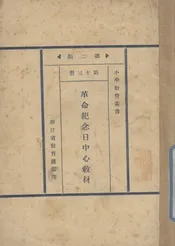 第二輯
第十三種
小學教育叢書
革命紀念日中心教材
浙江省教育廳編印